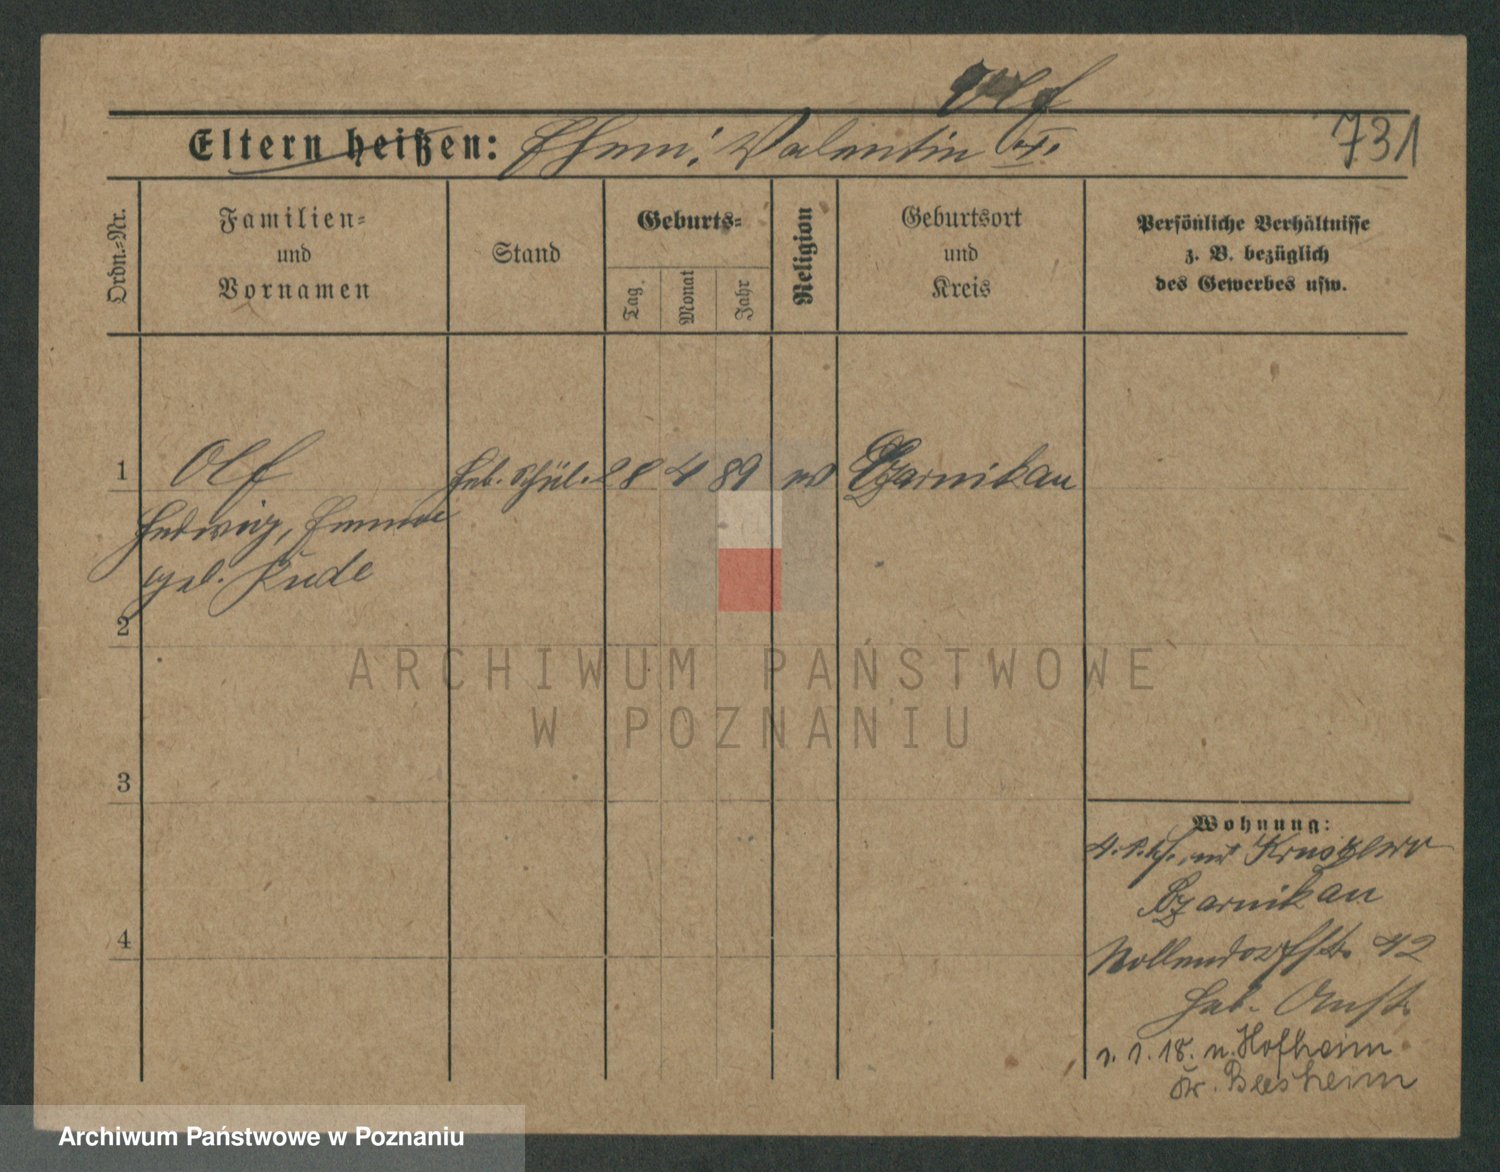 Olf
Eltern heißen: Ehem: Valentin
731
Ordn.=Nr.
Familien=
und
Vornamen
Stand
Geburts=
Tag
Monat
Jahr
Religion
Geburtsort
und
Kreis
Persönliche Verhältnisse
z. B. bezüglich
des Gewerbes usw.
1 Olf Heb. Schül. 28 4 89 Czarnikau
Hedwig, Emma
geb. Kude
2
3
4
Wohnung:
Czarnikau
Nollendorfstr. 42
Heb. Anst.
1. 1. 18. n. Hofheim
Kr.
ARCHIWUM PAŃSTWOWE
W POZNANIU
Archiwum Państwowe w Poznaniu